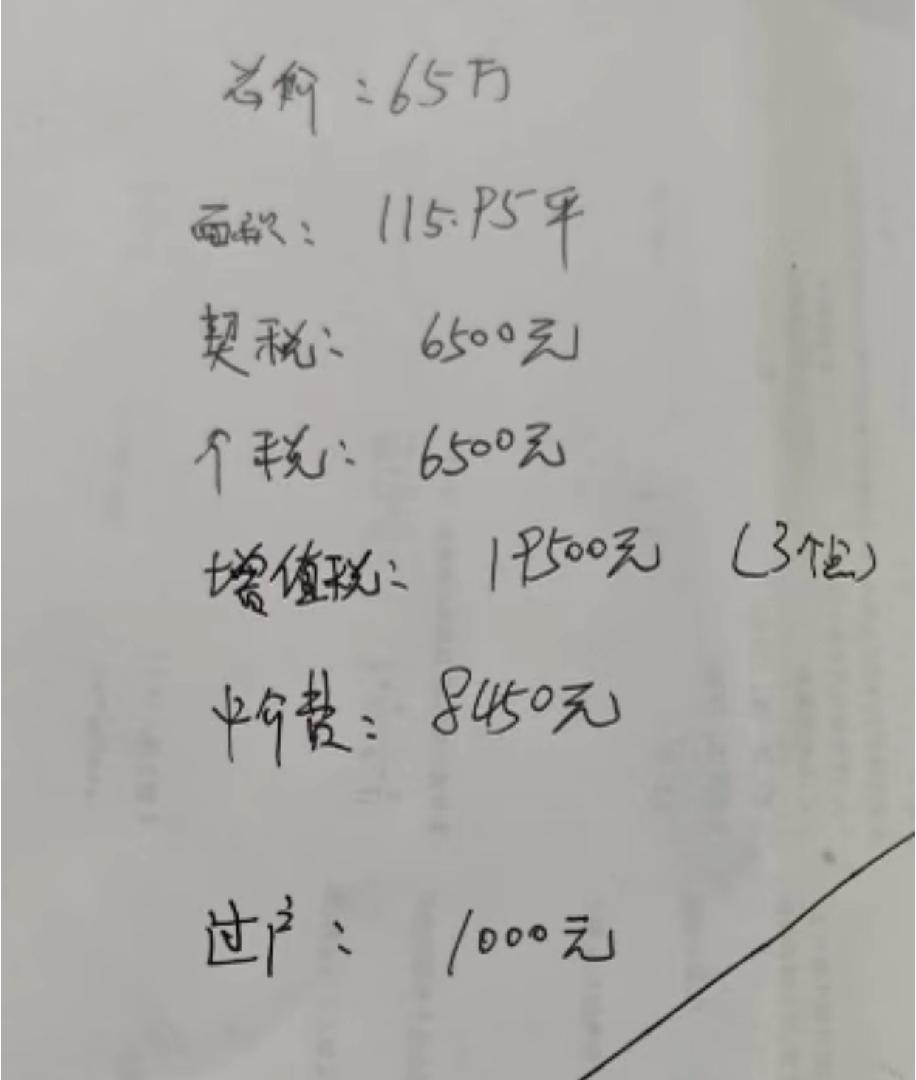 总价：65万
面积：115.95平
契税：6500元
个税：6500元
增值税：19500元（3个点）
中介费：8450元
过户：1000元